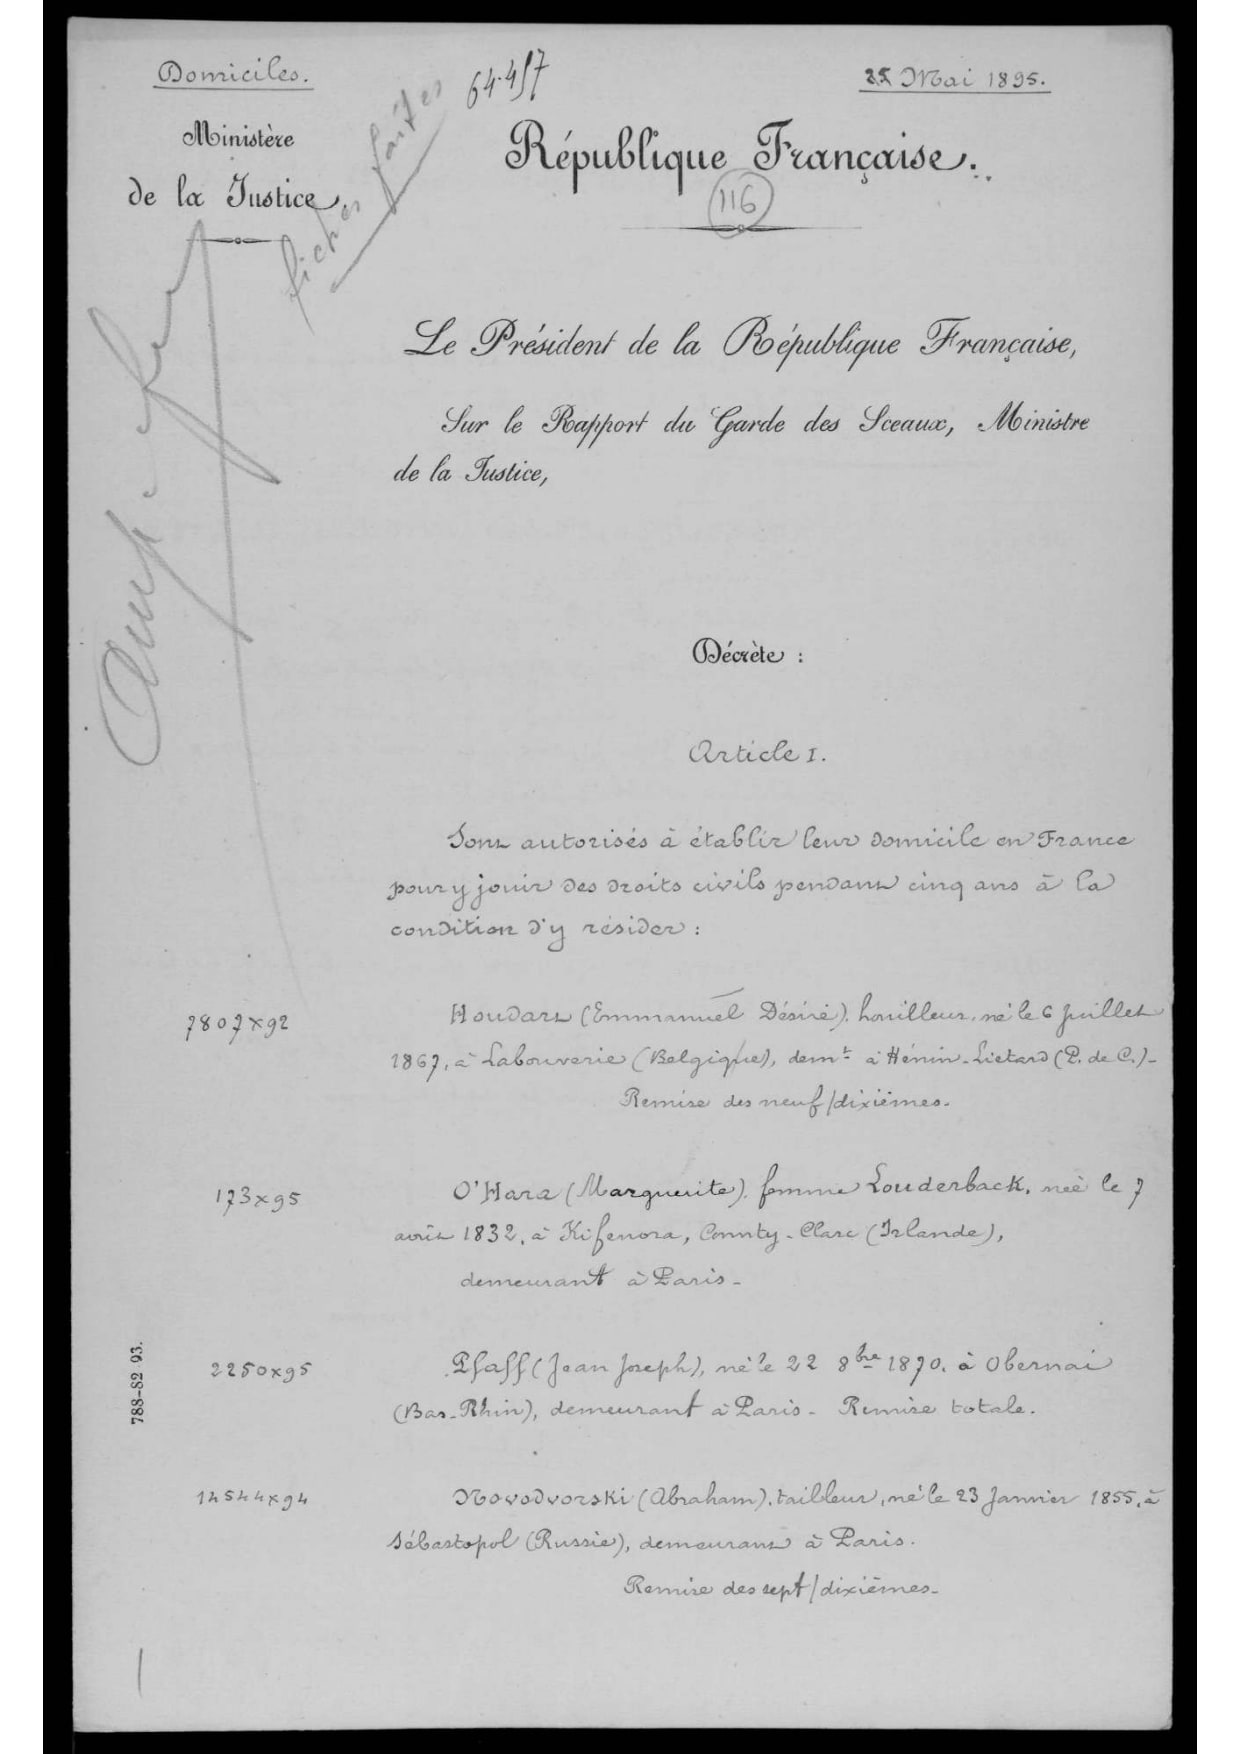 Domiciles.
64.457
25 Mai 1895.
fiches faites
Ministère
de la Justice.
République Française.
116
Le Président de la République Française,
Sur le Rapport du Garde des Sceaux, Ministre
de la Justice,
Décrète :
Article I.
Sont autorisés à établir leur domicile en France
pour y jouir des droits civils pendant cinq ans à la
condition d'y résider :
7807x92
Houdart (Emmanuel Désiré), houilleur, né le 6 juillet
1867, à Labouverie (Belgique), demt à Hénin-Liétard (P. de C.)-
Remise des neuf/dixièmes.
173x95
O'Hara (Marguerite), femme Louderback, née le 7
avril 1832, à Kifenora, County-Clare (Irlande),
demeurant à Paris-
2250x95
Pfaff (Jean Joseph), né le 22 8bre 1870, à Obernai
(Bas-Rhin), demeurant à Paris- Remise totale.
14544x94
Novodvorski (Abraham), tailleur, né le 23 Janvier 1855, à
Sébastopol (Russie), demeurant à Paris.
Remise des sept/dixièmes-
788-82 93.